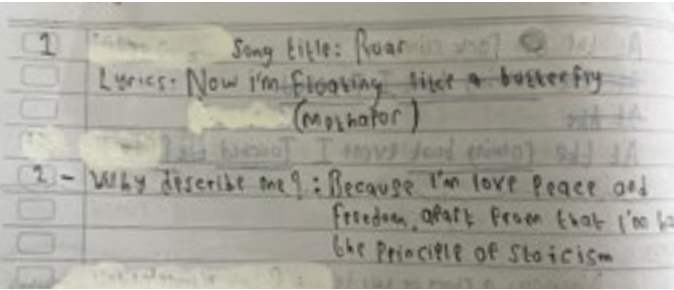 1 Song title: Roar
Lyrics: Now i'm floating like a butterfly
(Methafor)
2 - Why describe me?: Because I'm love peace and
freedom, apart from that I'm ha
the principle of Stoicism